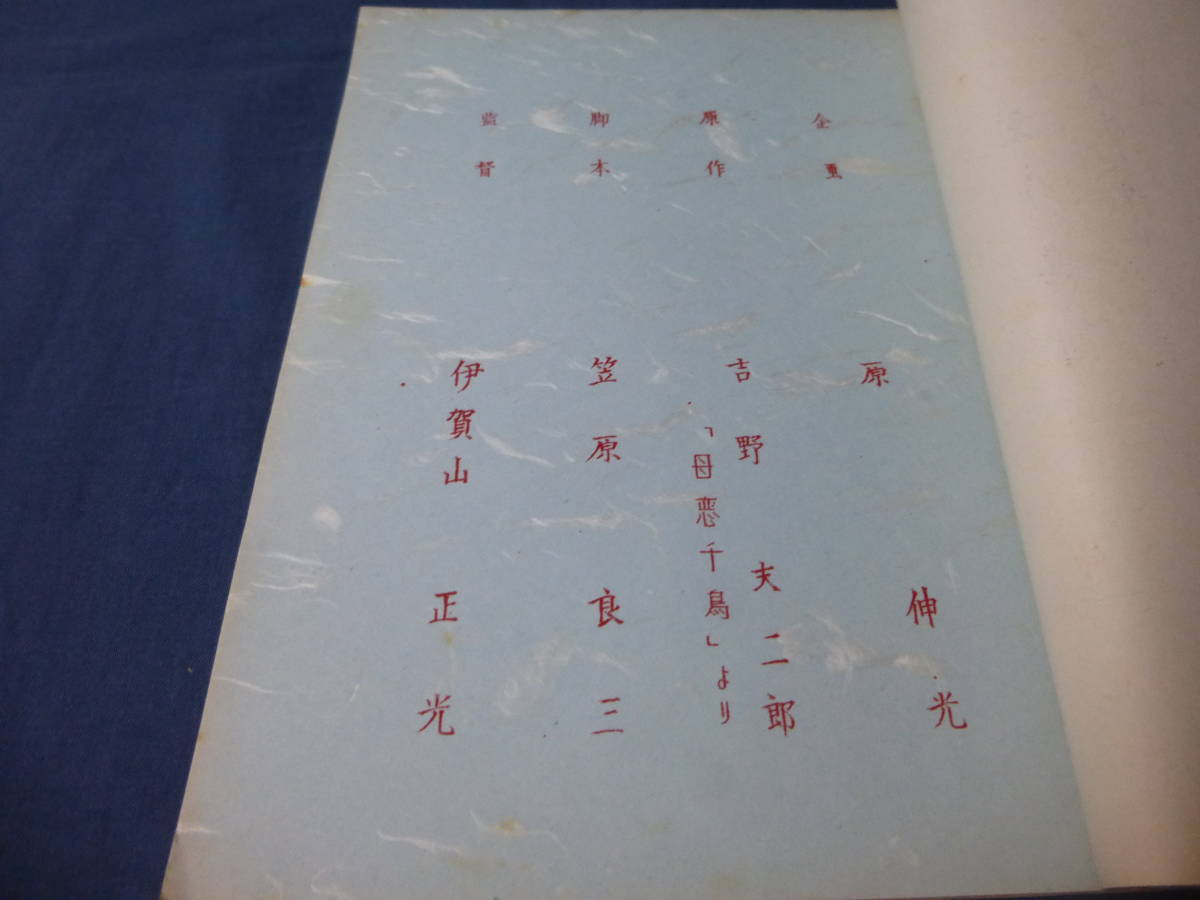 企画　原　伸光
原作　吉野夫二郎
「母恋千鳥」より
脚本　笠原良三
監督　伊賀山正光